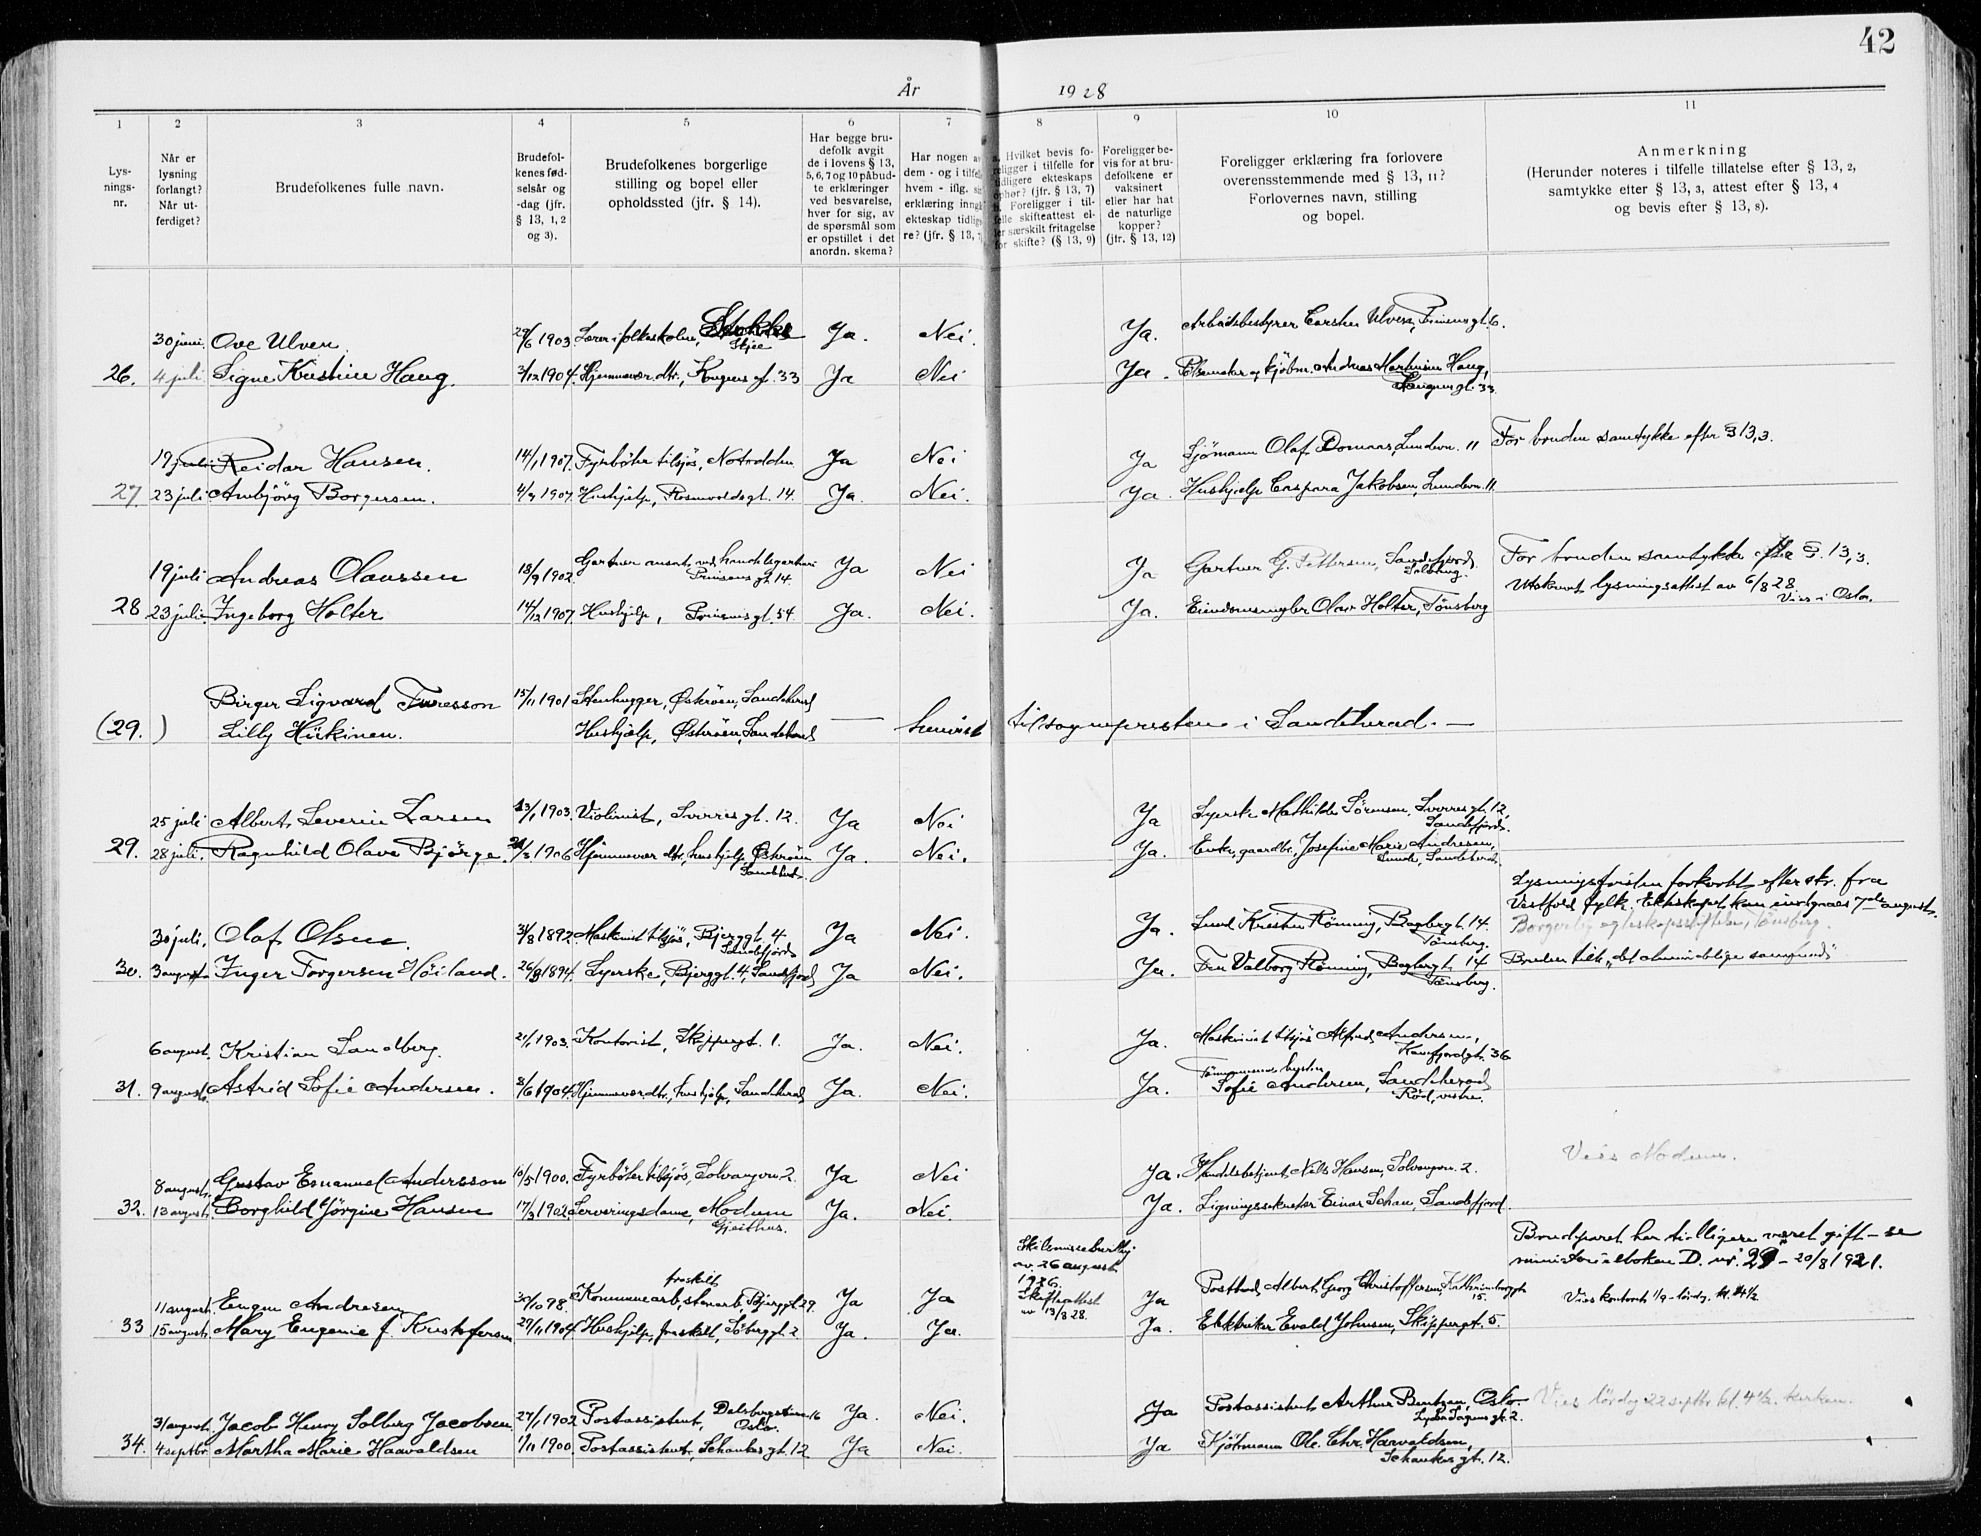 42
År 1928
1 2 3 4 5 6 7 8 9 10 11
Lys-
nings-
nr.
Når er
lysning
forlangt?
Når ut-
ferdiget?
Brudefolkenes fulle navn.
Brudefol-
kenes fød-
selsår og
-dag (jfr.
§ 13, 1, 2
og 3).
Brudefolkenes borgerlige
stilling og bopel eller
opholdssted (jfr. § 14).
Har begge bru-
defolk avgit
de i lovens § 13,
5, 6, 7 og 10 påbud-
te erklæringer
ved besvarelse,
hver for sig, av
de spørsmål som
er opstillet i det
anordn. skema?
Har nogen av
dem - og i tilfelle
hvem - iflg. sin
erklæring inngått
ekteskap tidlige-
re? (jfr. § 13, 7
a. Hvilket bevis fo-
religger i tilfelle for
tidligere ekteskaps
ophør? (jfr. § 13, 7)
b. Foreligger i til-
felle skifteattest el-
ler særskilt fritagelse
for skifte? (§ 13, 9)
Foreligger be-
vis for at bru-
defolkene er
vaksinert
eller har hat
de naturlige
kopper?
(jfr. § 13, 12)
Foreligger erklæring fra forlovere
overensstemmende med § 13, 11?
Forlovernes navn, stilling
og bopel.
Anmerkning
(Herunder noteres i tilfelle tillatelse efter § 13, 2,
samtykke efter § 13, 3, attest efter § 13, 4
og bevis efter § 13, 8).
30 juni. Ove Ulven. 29/6 1903 Lærer i folkeskolen, Stokke Skjee Ja. Nei. Ja. Arbeidsbestyrer Carsten Ulven, Prinsensgt. 6.
26. 4 juli Signe Kristine Haug. 3/12 1904. Hjemmevær. dtr., Kongens gt. 33 Ja Nei Ja. Pølsemaker og kjøbm. Andreas Martinsen Haug, Kongens gt. 33
19 juli Reidar Hansen. 14/1 1907. Fyrbøter tilsjøs, Notodden Ja Nei Ja Sjømann Olaf Domaas, Lundevn. 11 For bruden samtykke efter § 13,3.
27. 23 juli Anbjørg Borgersen. 4/7 1907. Hushjelp, Rosenvoldsgt. 14. Ja. Nei. Ja. Hushjelp Caspara Jakobsen, Lundevn. 11
19 juli Andreas Olaussen 18/9 1902. Gartner ansat ved handelsgartneri Prinsens gt. 14. Ja Nei Ja Gartner G. Pettersen, Sandefjord. For bruden samtykke efter § 13,3.
Utskrevet lysningsattest av 6/8 28 Vies i Oslo.
28 23 juli. Ingeborg Holter 14/12 1907. Hushjelp, Prinsens gt. 54. Ja. Nei. Ja. Eiendomsmegler Olav Holter, Tønsberg
Birger Sigvard Turesson 15/11 1901 Stenhugger, Østerøen, Sandeherad
(29.) Lilly Hickinen. Hushjelp, Østerøen, Sandeherad — henvist til sognepresten i Sandeherad. —
25 juli Albert Severin Larsen 13/1 1903. Violinist, Sverres gt. 12. Ja Nei Ja Syerske Mathilde Sørensen, Sverres gt. 12, Sandefjord.
29. 28 juli. Ragnhild Olava Bjørge. 1906 Hjemmevær. dtr., hushjelp, Østerøen Sandeherad. Ja. Nei. Ja. Enke, gaardbr., Josefine Marie Andresen, Lunde, Sandeherad.
Lysningsfristen forkortet efter skr. fra
Vestfold fylk. Ekteskapet kan inngaaes 7de august.
30 juli. Olaf Olsen. 31/8 1892. Maskinist tilsjøs, Bjerggt. 4 Sandefjord Ja Nei. Ja. Smed Kristen Rönning, Baglergt. 14. Tønsberg. Borgerlig egteskapsstiftelse, Tønsberg.
30. 3 august Inger Torgersen Höiland. 26/8 1894. Syerske, Bjerggt. 4, Sandefjord Ja Nei. Ja. Fru Valborg Rönning, Baglergt. 14 Tønsberg. Bruden tilh. „det almindelige samfund"
6 august. Kristian Sandberg. 21/1 1903. Kontorist, Skippergt. 1. Ja. Nei. Ja. Maskinist tilsjøs Alfred Andersen, Kamfjordgt. 36
31. 9 august. Astrid Sofie Andersen. 8/6 1904. Hjemmevær. dtr., hushjelp, Sandeherad Ja. Nei. Ja. Tømmermannshustru Sofie Andersen, Sandeherad Rød, vestre.
8 august. Gustav Emanuel Andersson 10/5 1900. Fyrbøter tilsjøs, Solvangvn. 2. Ja Nei Ja. Handelsbetjent Nils Hansen, Solvangvn. 2. Vies Modum.
32. 13 august. Borghild Jörgine Hansen 17/3 1902. Serveringsdame, Modum Gjeithus. Ja. Nei. Ja. Ligningssekretær Einar Schau, Sandefjord.
Brudparet har tidligere været gift – se
ministerialboken D. nr. 29 – 20/8 1921.
Skilsmissebevilling
av 26 august
1926.
Skifteattest
av 13/8 28.
11 august. Eugen Andresen 30/10 98. Kommunearb., stenarb., fraskilt Bjerggt. 29. Ja Ja Ja Postbud, Albert Georg Christoffersen, 15. Vies kontoret 1/9 – lørdag. kl. 4½.
33 15 august. Mary Eugenie f. Kristofersen 29/11 1904. Hushjelp, fraskilt, Søberggt. 2 Ja. Ja. Ja. Elektriker Evald Johnsen, Skippergt. 5
31 august. Jacob Henry Solberg Jacobsen. 27/1 1902 Postassistent, Dalsbergstien 16 Oslo. Ja. Nei. Ja Postassistent Arthur Bentzen, Oslo. Lyder Sagens gt. 2. Vies lørdag 22 septbr. kl. 4½. kirken.
34. 4 septbr. Martha Marie Haavaldsen 1/11 1900 Postassistent, Schankes gt. 12 Ja Nei. Ja Kjøbmann Ole Chr. Haavaldsen, Schankes gt. 12.